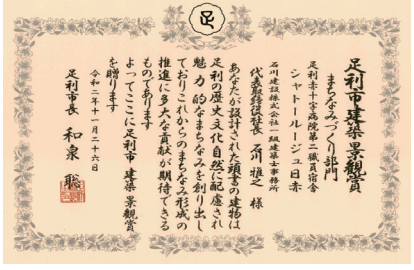 足利市建築景観賞
まちなみづくり部門
足利赤十字病院第二職員宿舎
シャトールージュ日赤
石川建設株式会社一級建築士事務所
代表取締役社長 石川雅之 様
あなたが設計された頭書の建物は
足利の歴史文化自然に配慮され
魅力的なまちなみを創り出し
ておりこれからのまちなみ形成の
推進に多大な貢献が期待できる
ものであります
よってここに足利市建築景観賞
を贈ります
令和二年十一月二十六日
足利市長 和泉 聡